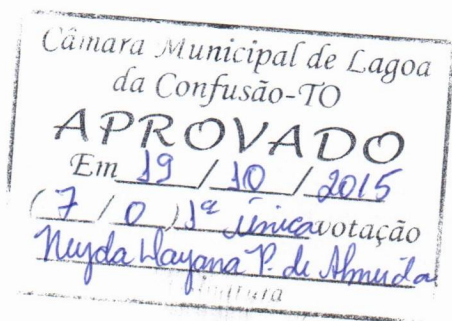 Câmara Municipal de Lagoa
da Confusão-TO
APROVADO
Em 19 / 10 / 2015
( 7 / 0 ) 1ª única votação
Neyda Dayana P. de Almeida